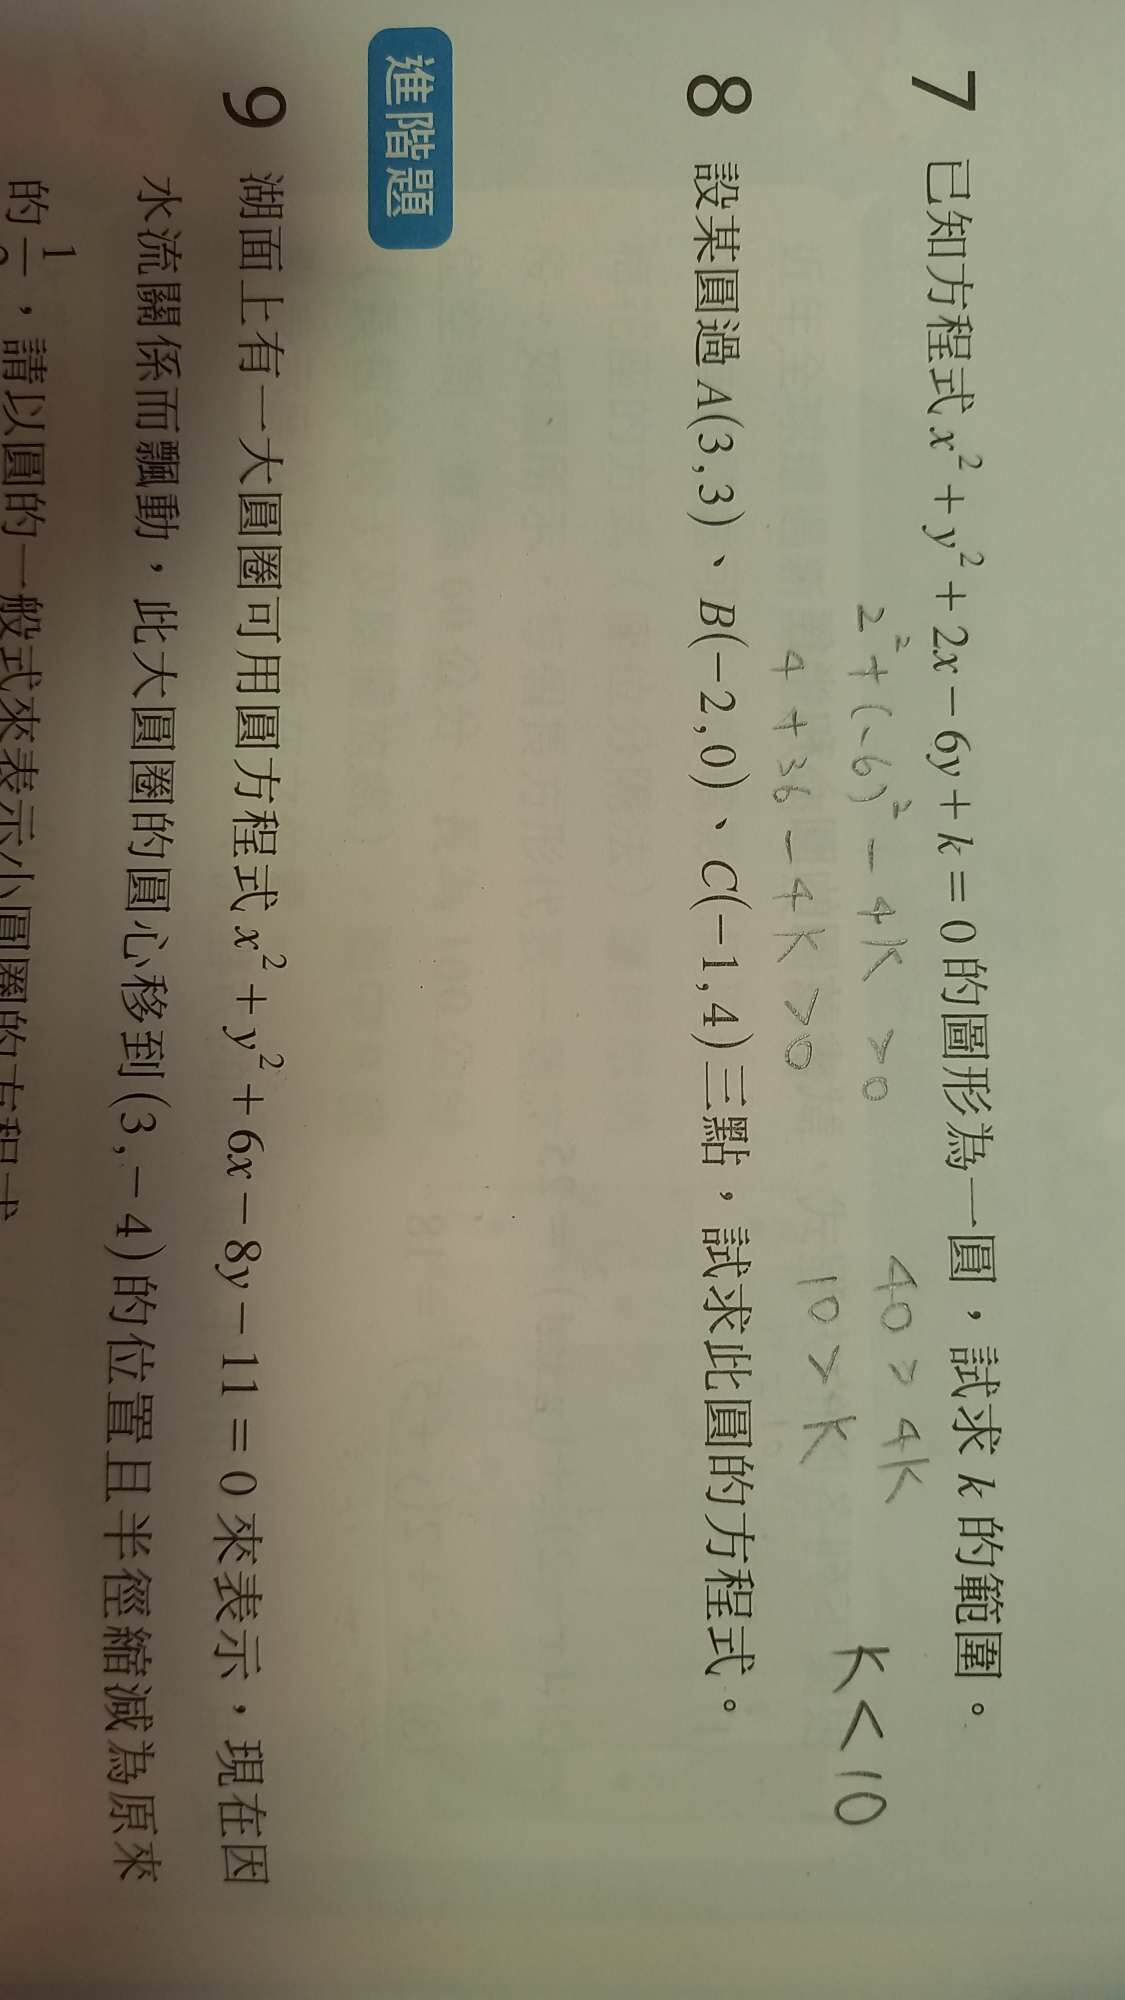 7 已知方程式 x² + y² + 2x − 6y + k = 0 的圖形為一圓，試求 k 的範圍。
2² + (-6)² - 4k > 0
40 > 4k
4 + 36 - 4k > 0
10 > k
k < 10
8 設某圓過 A(3,3)、B(−2,0)、C(−1,4)三點，試求此圓的方程式。
進階題
9 湖面上有一大圓圈可用圓方程式 x² + y² + 6x − 8y − 11 = 0 來表示，現在因
水流關係而飄動，此大圓圈的圓心移到(3,−4)的位置且半徑縮減為原來
，請以圓的一般式來表示小圓圈的方程式